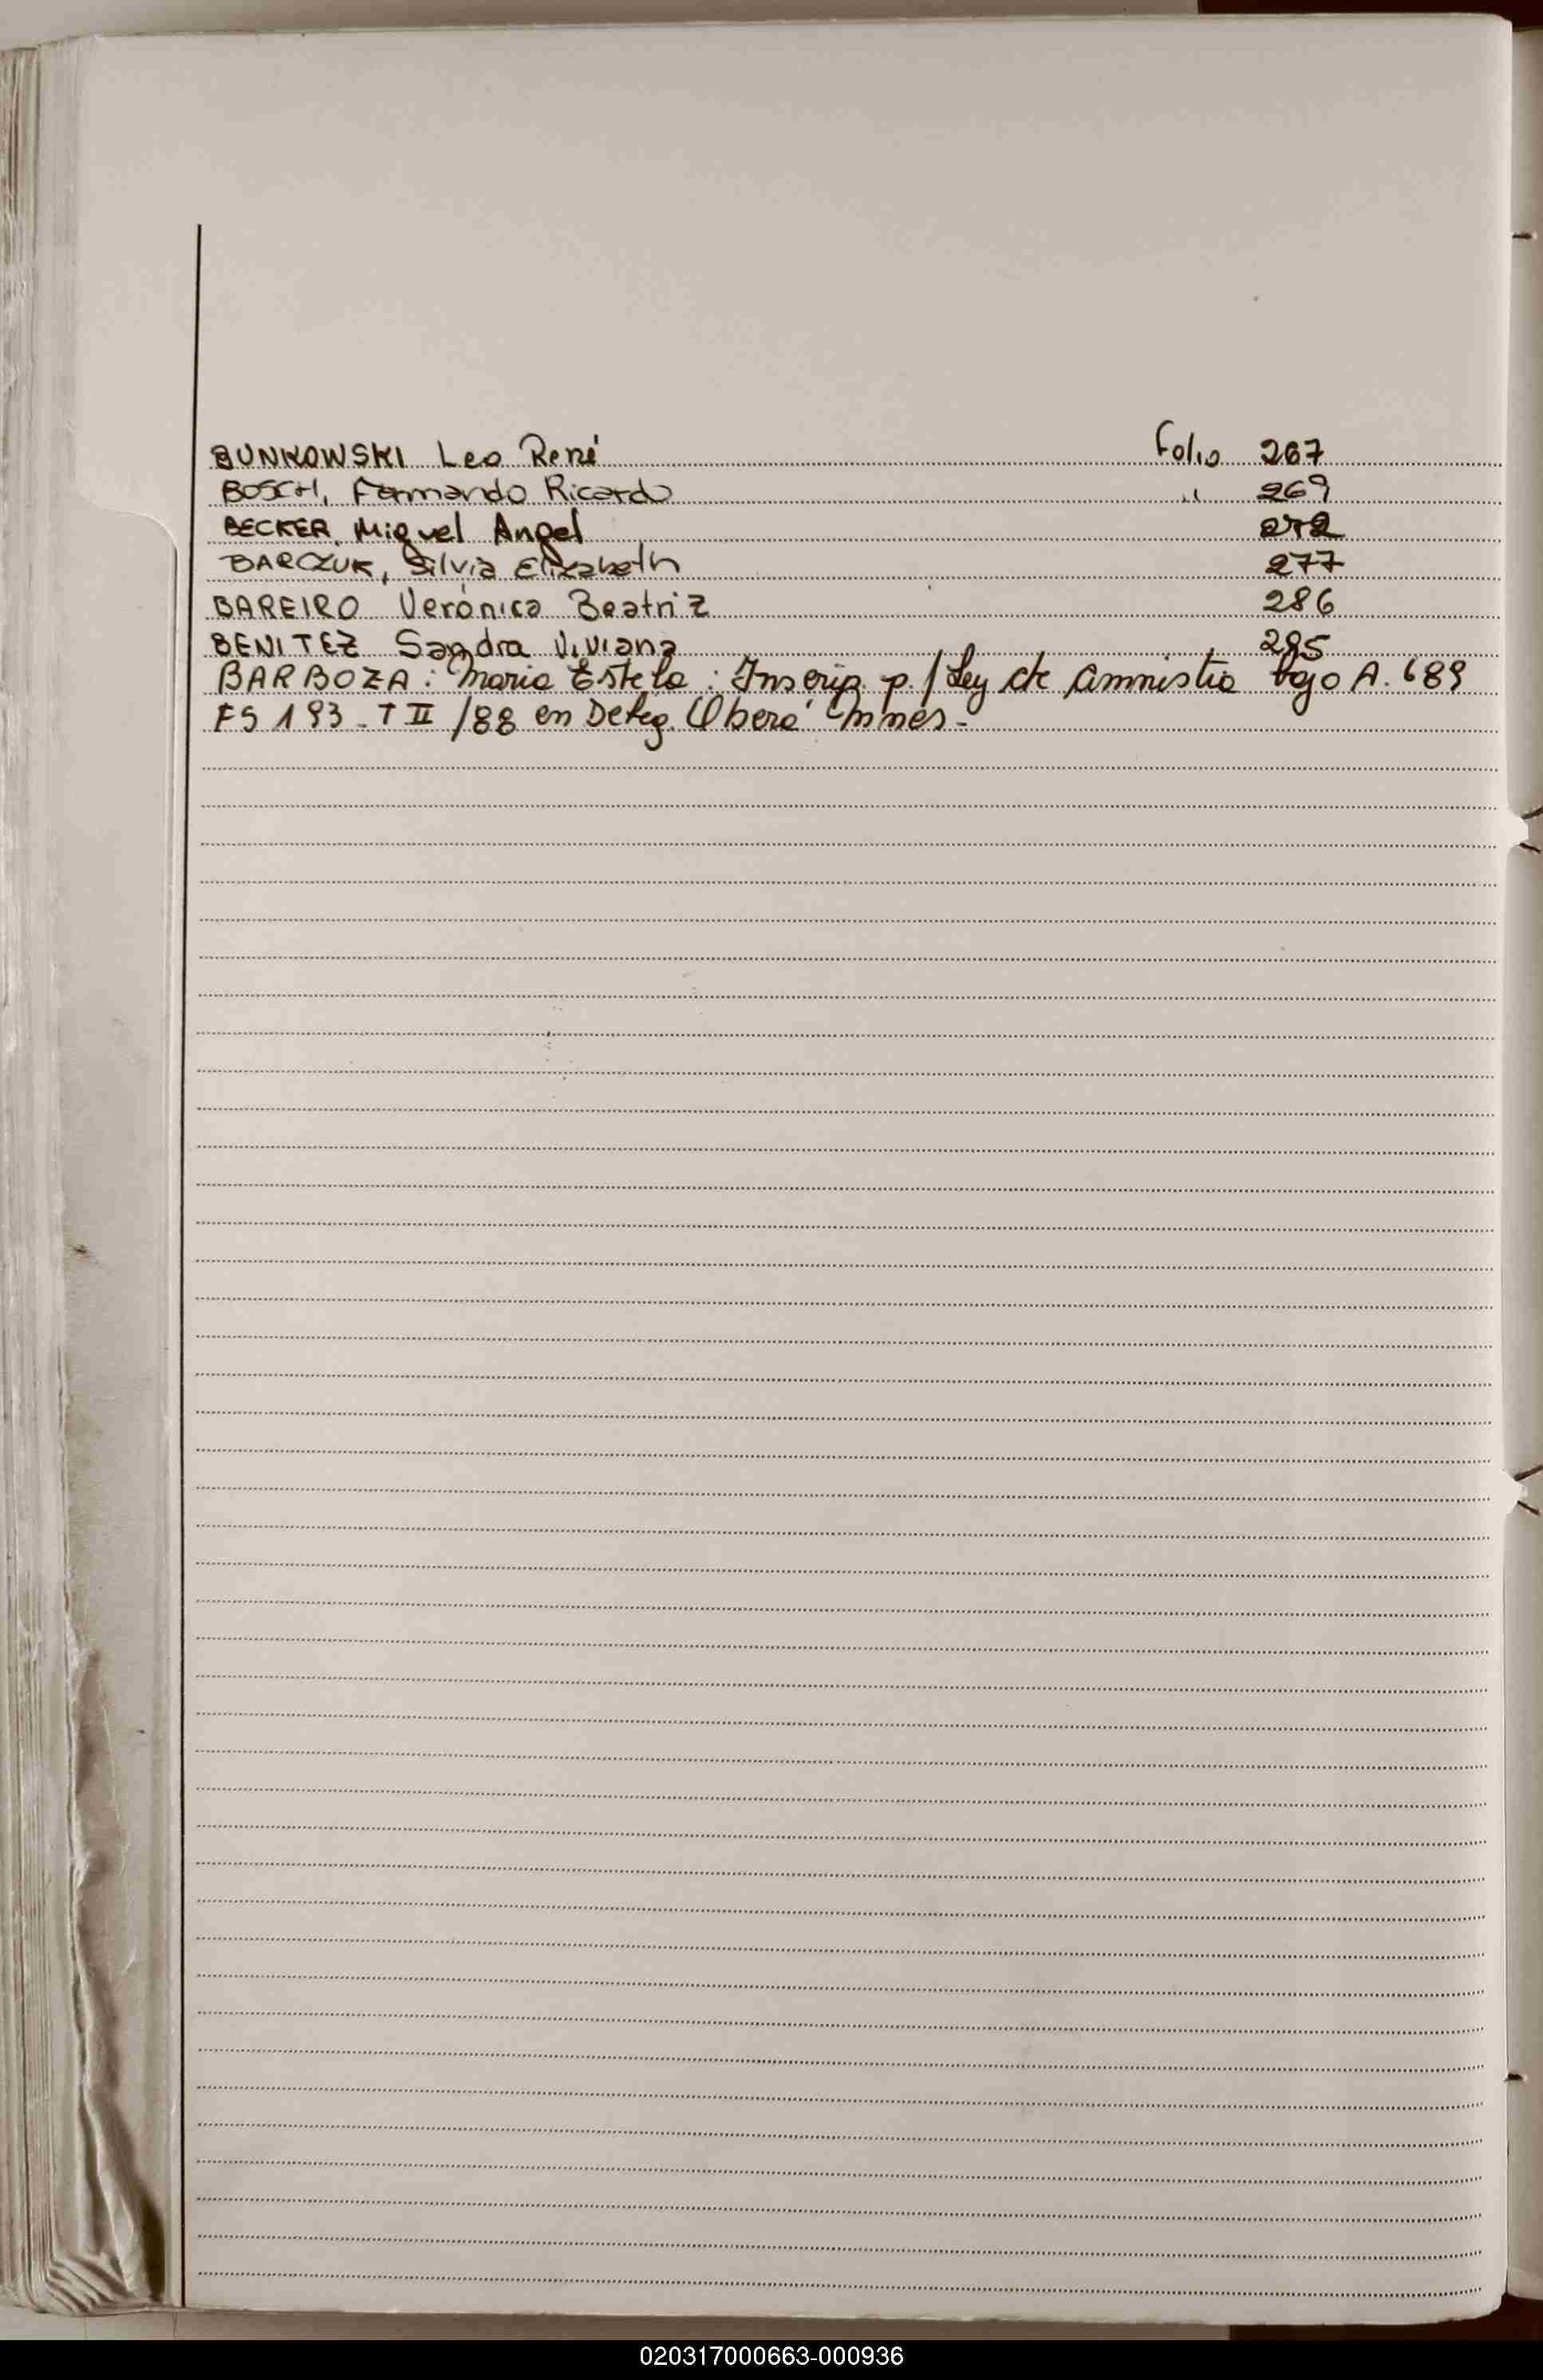 BUNKOWSKI Leo René Folio 267
BOSCH, Fernando Ricardo " 269
BECKER, Miguel Angel 272
BARCZUK, Silvia Elizabeth 277
BAREIRO Verónica Beatriz 286
BENITEZ Sandra Viviana 285
BARBOZA: Maria Estela: Inscrip. p./ Ley de Amnistia bajo A. 689
FS 193 - T II /88 en Deleg. Oberá Mnes -
020317000663-000936